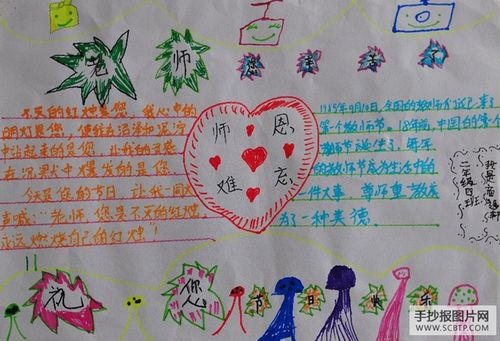 老师您辛苦了
不灭的红烛是您，我心中的
明灯是您，使我在污浊和泥泞
中站起来的是您，让我的灵感
在沉默中爆发的是您
今天是您的节日，让我一同大
声喊：老师，您是不灭的红烛，
永远燃烧自己的红烛！
师恩
难忘
1985年9月10日，全国的教师们迎来
第一个教师节。18年前，中国的第一个
教师节诞生了，每年
的教师节成为生活中的
一件大事，尊师重教成
为一种美德。
二年级四班
祝您节日快乐
手抄报图片网
WWW.SCBTP.COM